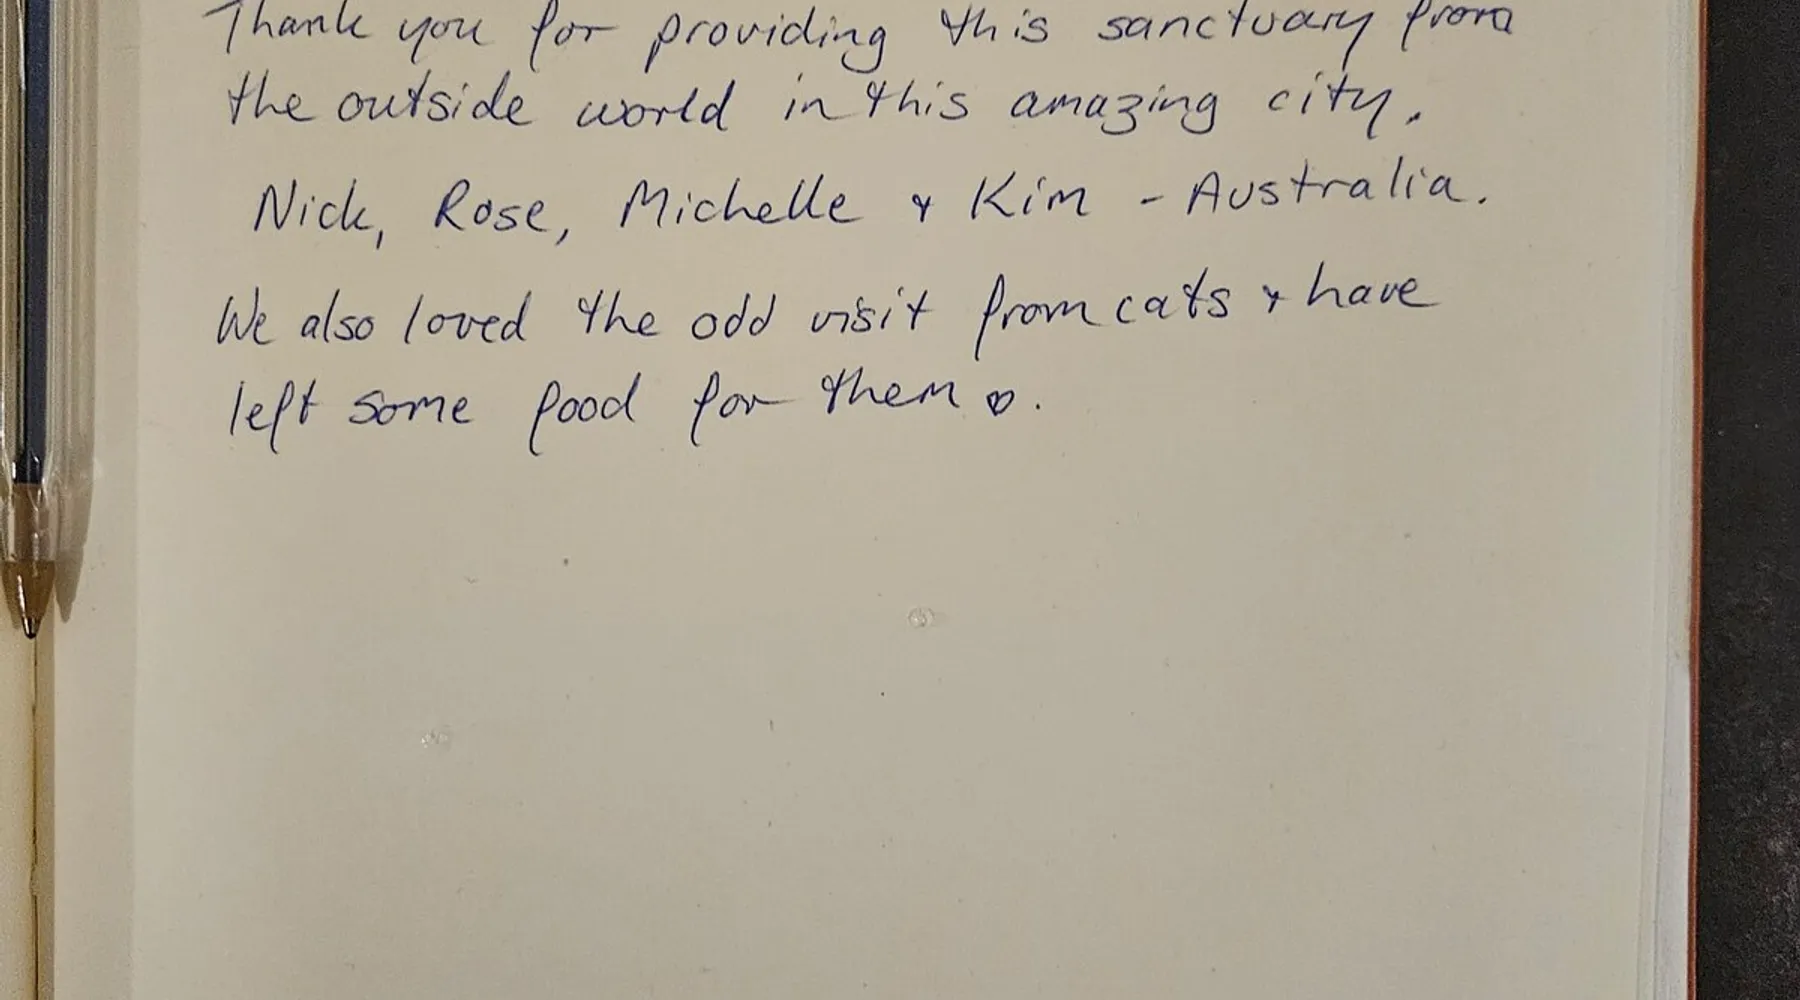 Thank you for providing this sanctuary from
the outside world in this amazing city.
Nick, Rose, Michelle & Kim - Australia.
We also loved the odd visit from cats & have
left some food for them ♡.